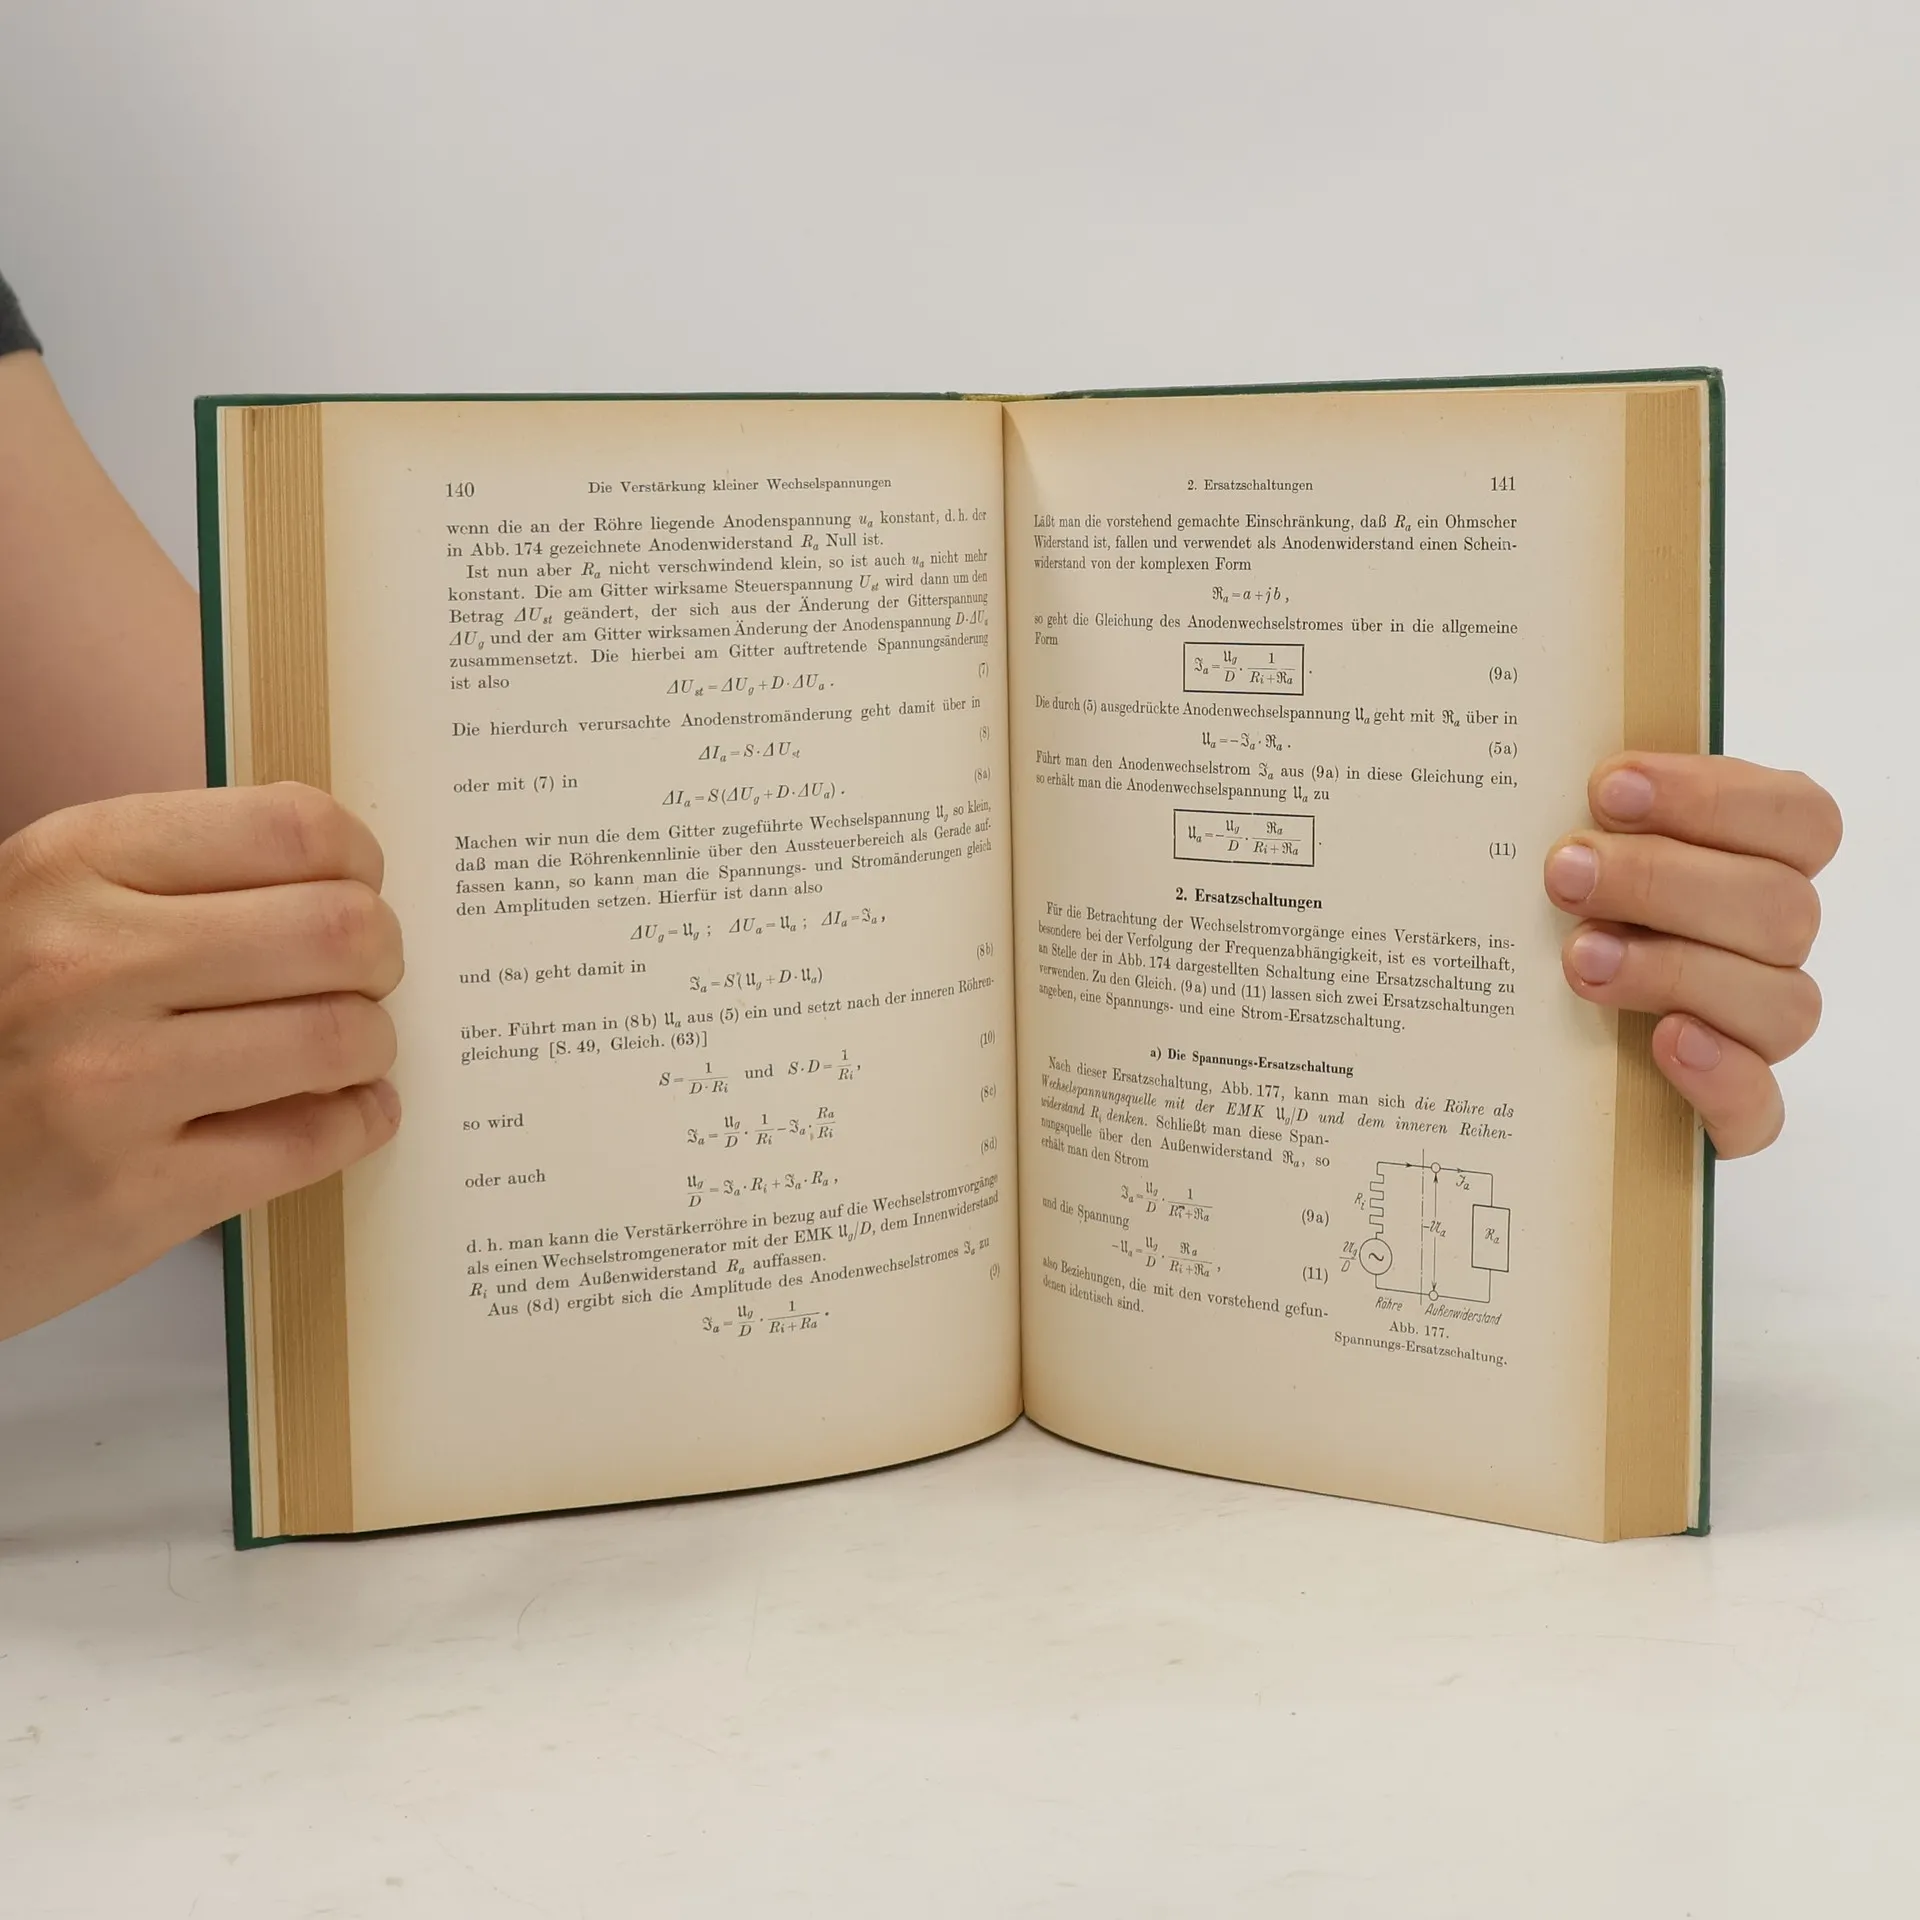 140 Die Verstärkung kleiner Wechselspannungen
wenn die an der Röhre liegende Anodenspannung u_a konstant, d. h. der
in Abb. 174 gezeichnete Anodenwiderstand R_a Null ist.
Ist nun aber R_a nicht verschwindend klein, so ist auch u_a nicht mehr
konstant. Die am Gitter wirksame Steuerspannung U_st wird dann um den
Betrag ΔU_st geändert, der sich aus der Änderung der Gitterspannung
ΔU_g und der am Gitter wirksamen Änderung der Anodenspannung D·ΔU_a
zusammensetzt. Die hierbei am Gitter auftretende Spannungsänderung
ist also
ΔU_st = ΔU_g + D·ΔU_a . (7)
Die hierdurch verursachte Anodenstromänderung geht damit über in
ΔI_a = S·ΔU_st (8)
oder mit (7) in
ΔI_a = S(ΔU_g + D·ΔU_a) . (8a)
Machen wir nun die dem Gitter zugeführte Wechselspannung 𝔘_g so klein,
daß man die Röhrenkennlinie über den Aussteuerbereich als Gerade auf-
fassen kann, so kann man die Spannungs- und Stromänderungen gleich
den Amplituden setzen. Hierfür ist dann also
ΔU_g = 𝔘_g ; ΔU_a = 𝔘_a ; ΔI_a = ℑ_a ,
und (8a) geht damit in
ℑ_a = S(𝔘_g + D·𝔘_a) (8b)
über. Führt man in (8b) 𝔘_a aus (5) ein und setzt nach der inneren Röhren-
gleichung [S. 49, Gleich. (63)]
S = 1/(D·R_i) und S·D = 1/R_i , (10)
so wird
ℑ_a = 𝔘_g/D · 1/R_i − ℑ_a · R_a/R_i (8c)
oder auch
𝔘_g/D = ℑ_a·R_i + ℑ_a·R_a , (8d)
d. h. man kann die Verstärkerröhre in bezug auf die Wechselstromvorgänge
als einen Wechselstromgenerator mit der EMK 𝔘_g/D, dem Innenwiderstand
R_i und dem Außenwiderstand R_a auffassen.
Aus (8d) ergibt sich die Amplitude des Anodenwechselstromes ℑ_a zu
ℑ_a = 𝔘_g/D · 1/(R_i + R_a) . (9)
2. Ersatzschaltungen 141
Läßt man die vorstehend gemachte Einschränkung, daß R_a ein Ohmscher
Widerstand ist, fallen und verwendet als Anodenwiderstand einen Schein-
widerstand von der komplexen Form
ℜ_a = a + jb ,
so geht die Gleichung des Anodenwechselstromes über in die allgemeine
Form
ℑ_a = 𝔘_g/D · 1/(R_i + ℜ_a) . (9a)
Die durch (5) ausgedrückte Anodenwechselspannung 𝔘_a geht mit ℜ_a über in
𝔘_a = − ℑ_a · ℜ_a . (5a)
Führt man den Anodenwechselstrom ℑ_a aus (9a) in diese Gleichung ein,
so erhält man die Anodenwechselspannung 𝔘_a zu
𝔘_a = − 𝔘_g/D · ℜ_a/(R_i + ℜ_a) . (11)
2. Ersatzschaltungen
Für die Betrachtung der Wechselstromvorgänge eines Verstärkers, ins-
besondere bei der Verfolgung der Frequenzabhängigkeit, ist es vorteilhaft,
an Stelle der in Abb. 174 dargestellten Schaltung eine Ersatzschaltung zu
verwenden. Zu den Gleich. (9a) und (11) lassen sich zwei Ersatzschaltungen
angeben, eine Spannungs- und eine Strom-Ersatzschaltung.
a) Die Spannungs-Ersatzschaltung
Nach dieser Ersatzschaltung, Abb. 177, kann man sich die Röhre als
Wechselspannungsquelle mit der EMK 𝔘_g/D und dem inneren Reihen-
widerstand R_i denken. Schließt man diese Span-
nungsquelle über den Außenwiderstand ℜ_a, so
erhält man den Strom
ℑ_a = 𝔘_g/D · 1/(R_i + ℜ_a) (9a)
und die Spannung
−𝔘_a = 𝔘_g/D · ℜ_a/(R_i + ℜ_a) , (11)
also Beziehungen, die mit den vorstehend gefun-
denen identisch sind.
ℑ_a
R_i
−𝔘_a
ℜ_a
𝔘_g/D
Röhre Außenwiderstand
Abb. 177.
Spannungs-Ersatzschaltung.